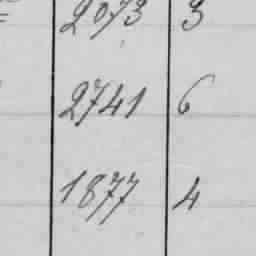 2073 3
2741 6
1877 4